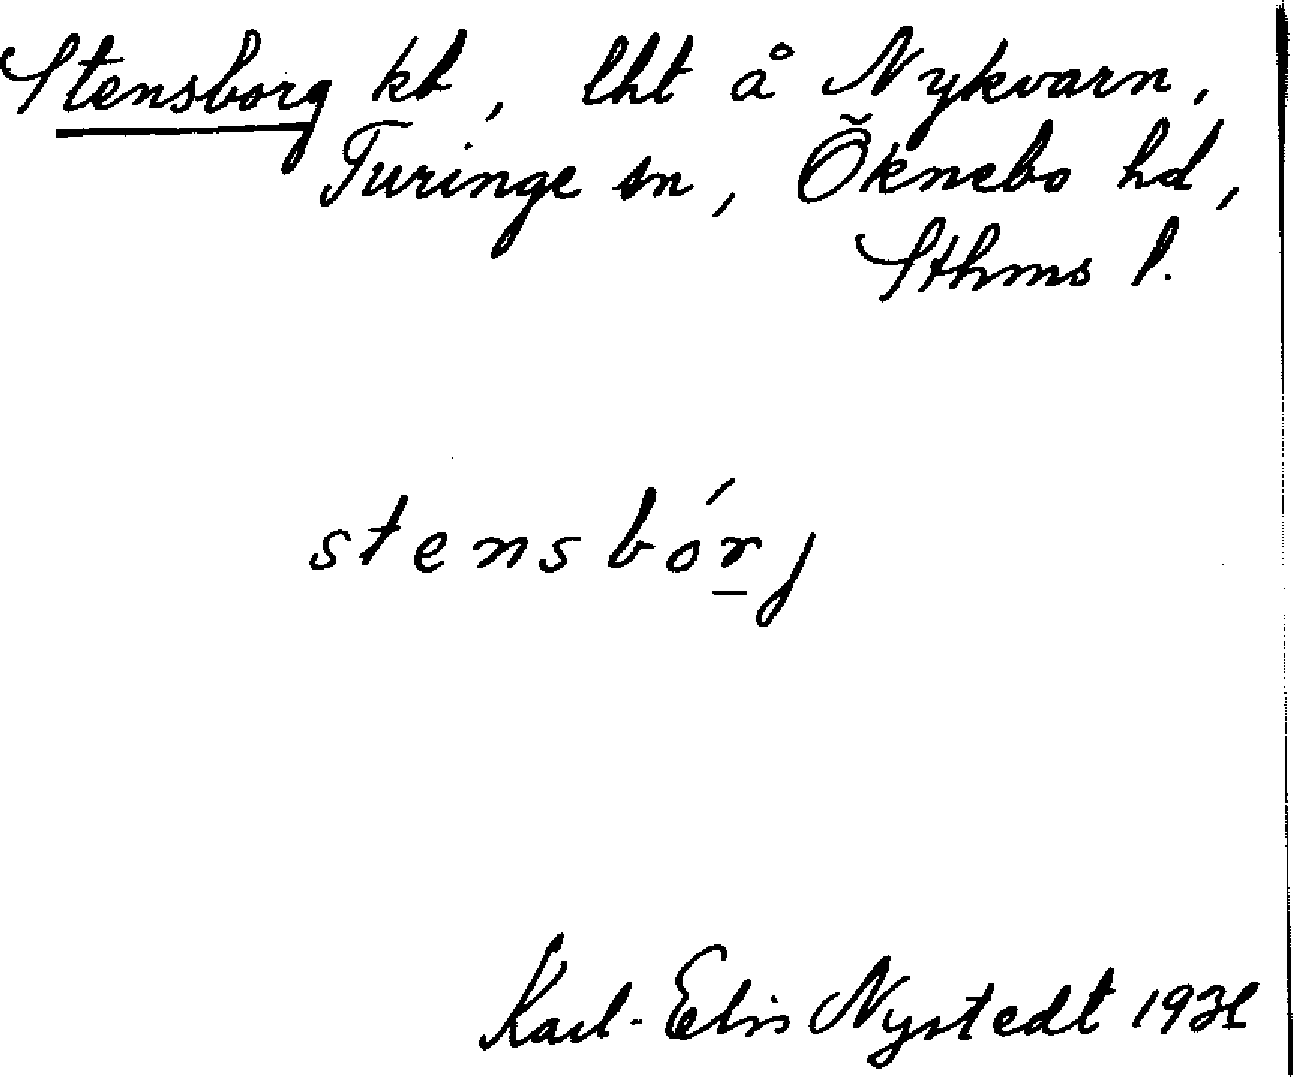 Stensborg kt, lht å Nykvarn,
Turinge sn, Öknebo hd,
Sthms l.
stensbórj
Karl-Elis Nystedt